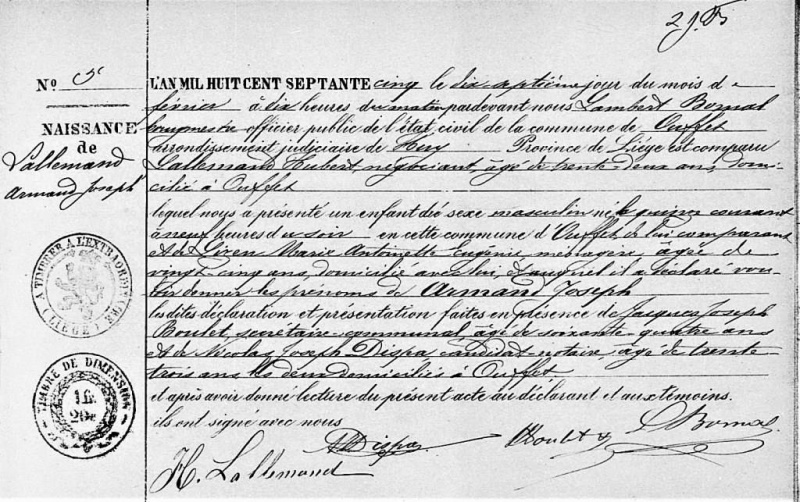 Nº 5
NAISSANCE
de
Lallemand
Armand Joseph
L'AN MIL HUIT CENT SEPTANTE cinq le dix septième jour du mois de
février à dix heures du matin pardevant nous Lambert Bomal
bourgmestre officier public de l'état civil de la commune de Ouffet
arrondissement judiciaire de Huy Province de Liége est comparu
Lallemand Hubert, négociant, âgé de trente deux ans, domi-
cilié à Ouffet
lequel nous a présenté un enfant du sexe masculin né le quinze courant
à neuf heures du soir en cette commune d'Ouffet de lui comparant
et de Lizen Marie Antoinette Eugénie, ménagère, âgée de
vingt cinq ans, domiciliée avec lui, et auquel il a déclaré vou-
loir donner les prénoms de Armand Joseph
lesdites déclaration et présentation faites en présence de Jacques Joseph
Boulet, secrétaire communal âgé de soixante quatre ans
et de Nicolas Joseph Dispa candidat notaire, âgé de trente
trois ans les deux domiciliés à Ouffet
et après avoir donné lecture du présent acte au déclarant et aux témoins.
ils ont signé avec nous
Dispa Boulet Bomal
H. Lallemand
A TIMBRER A L'EXTRAORDINAIRE
(LIÉGE)
TIMBRE DE DIMENSION
1 fr.
20 c